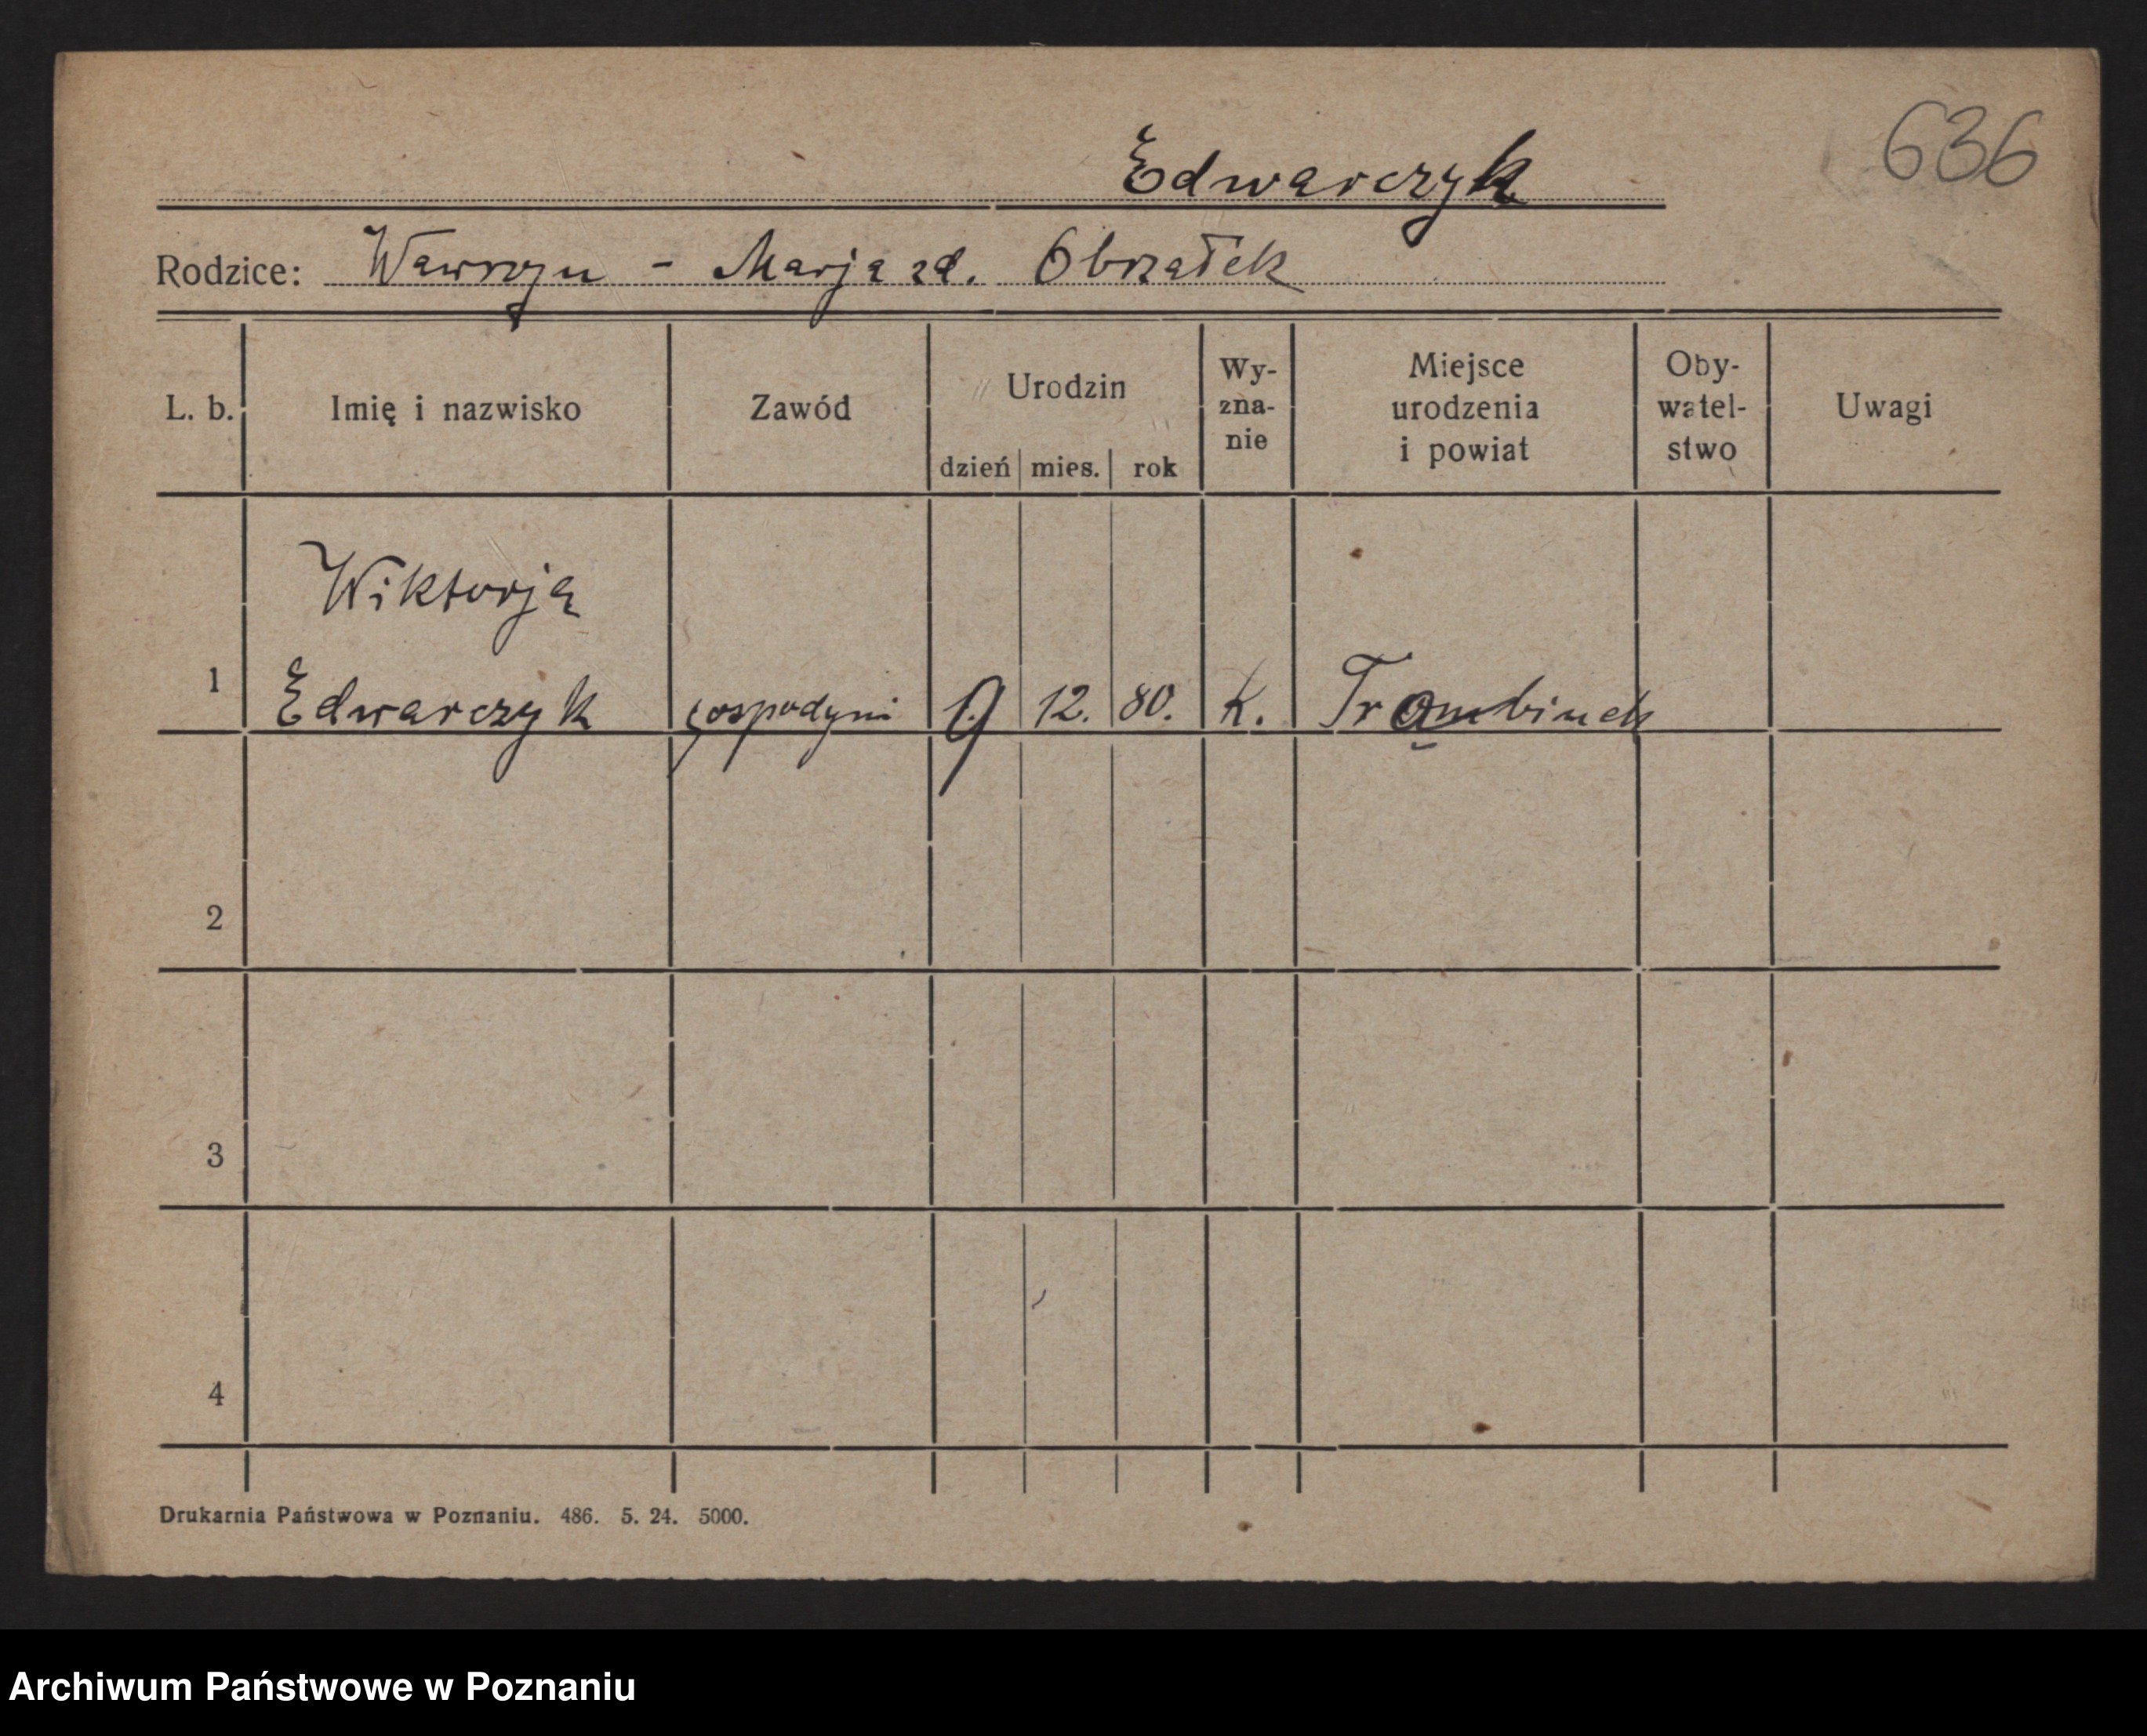 636
Edwarczyk
Rodzice: Wawrzyn - Marja zd. Obrzałek
L. b. Imię i nazwisko Zawód Urodzin dzień mies. rok Wy-zna-nie Miejsce urodzenia i powiat Oby-watel-stwo Uwagi
Wiktorja
1 Edwarczyk gospodyni 9 12. 80. K. Trąmbinek
2
3
4
Drukarnia Państwowa w Poznaniu. 486. 5. 24. 5000.
Archiwum Państwowe w Poznaniu